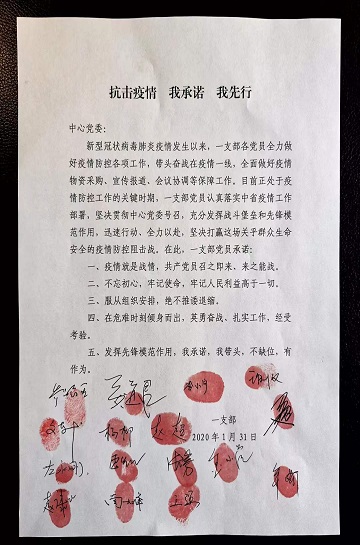 抗击疫情　我承诺　我先行
中心党委：
新型冠状病毒肺炎疫情发生以来，一支部各党员全力做
好疫情防控各项工作，带头奋战在疫情一线，全面做好疫情
物资采购、宣传报道、会议协调等保障工作。目前正处于疫
情防控工作的关键时期，一支部党员认真落实中省疫情工作
部署，坚决贯彻中心党委号召，充分发挥战斗堡垒和先锋模
范作用，迅速行动、全力以赴，坚决打赢这场关乎群众生命
安全的疫情防控阻击战。在此，一支部党员承诺：
一、疫情就是战情，共产党员召之即来、来之能战。
二、不忘初心，牢记使命，牢记人民利益高于一切。
三、服从组织安排，绝不推诿退缩。
四、在危难时刻倾身而出，英勇奋战、扎实工作，经受
考验。
五、发挥先锋模范作用，我承诺，我带头，不缺位，有
作为。
一支部
2020年1月31日